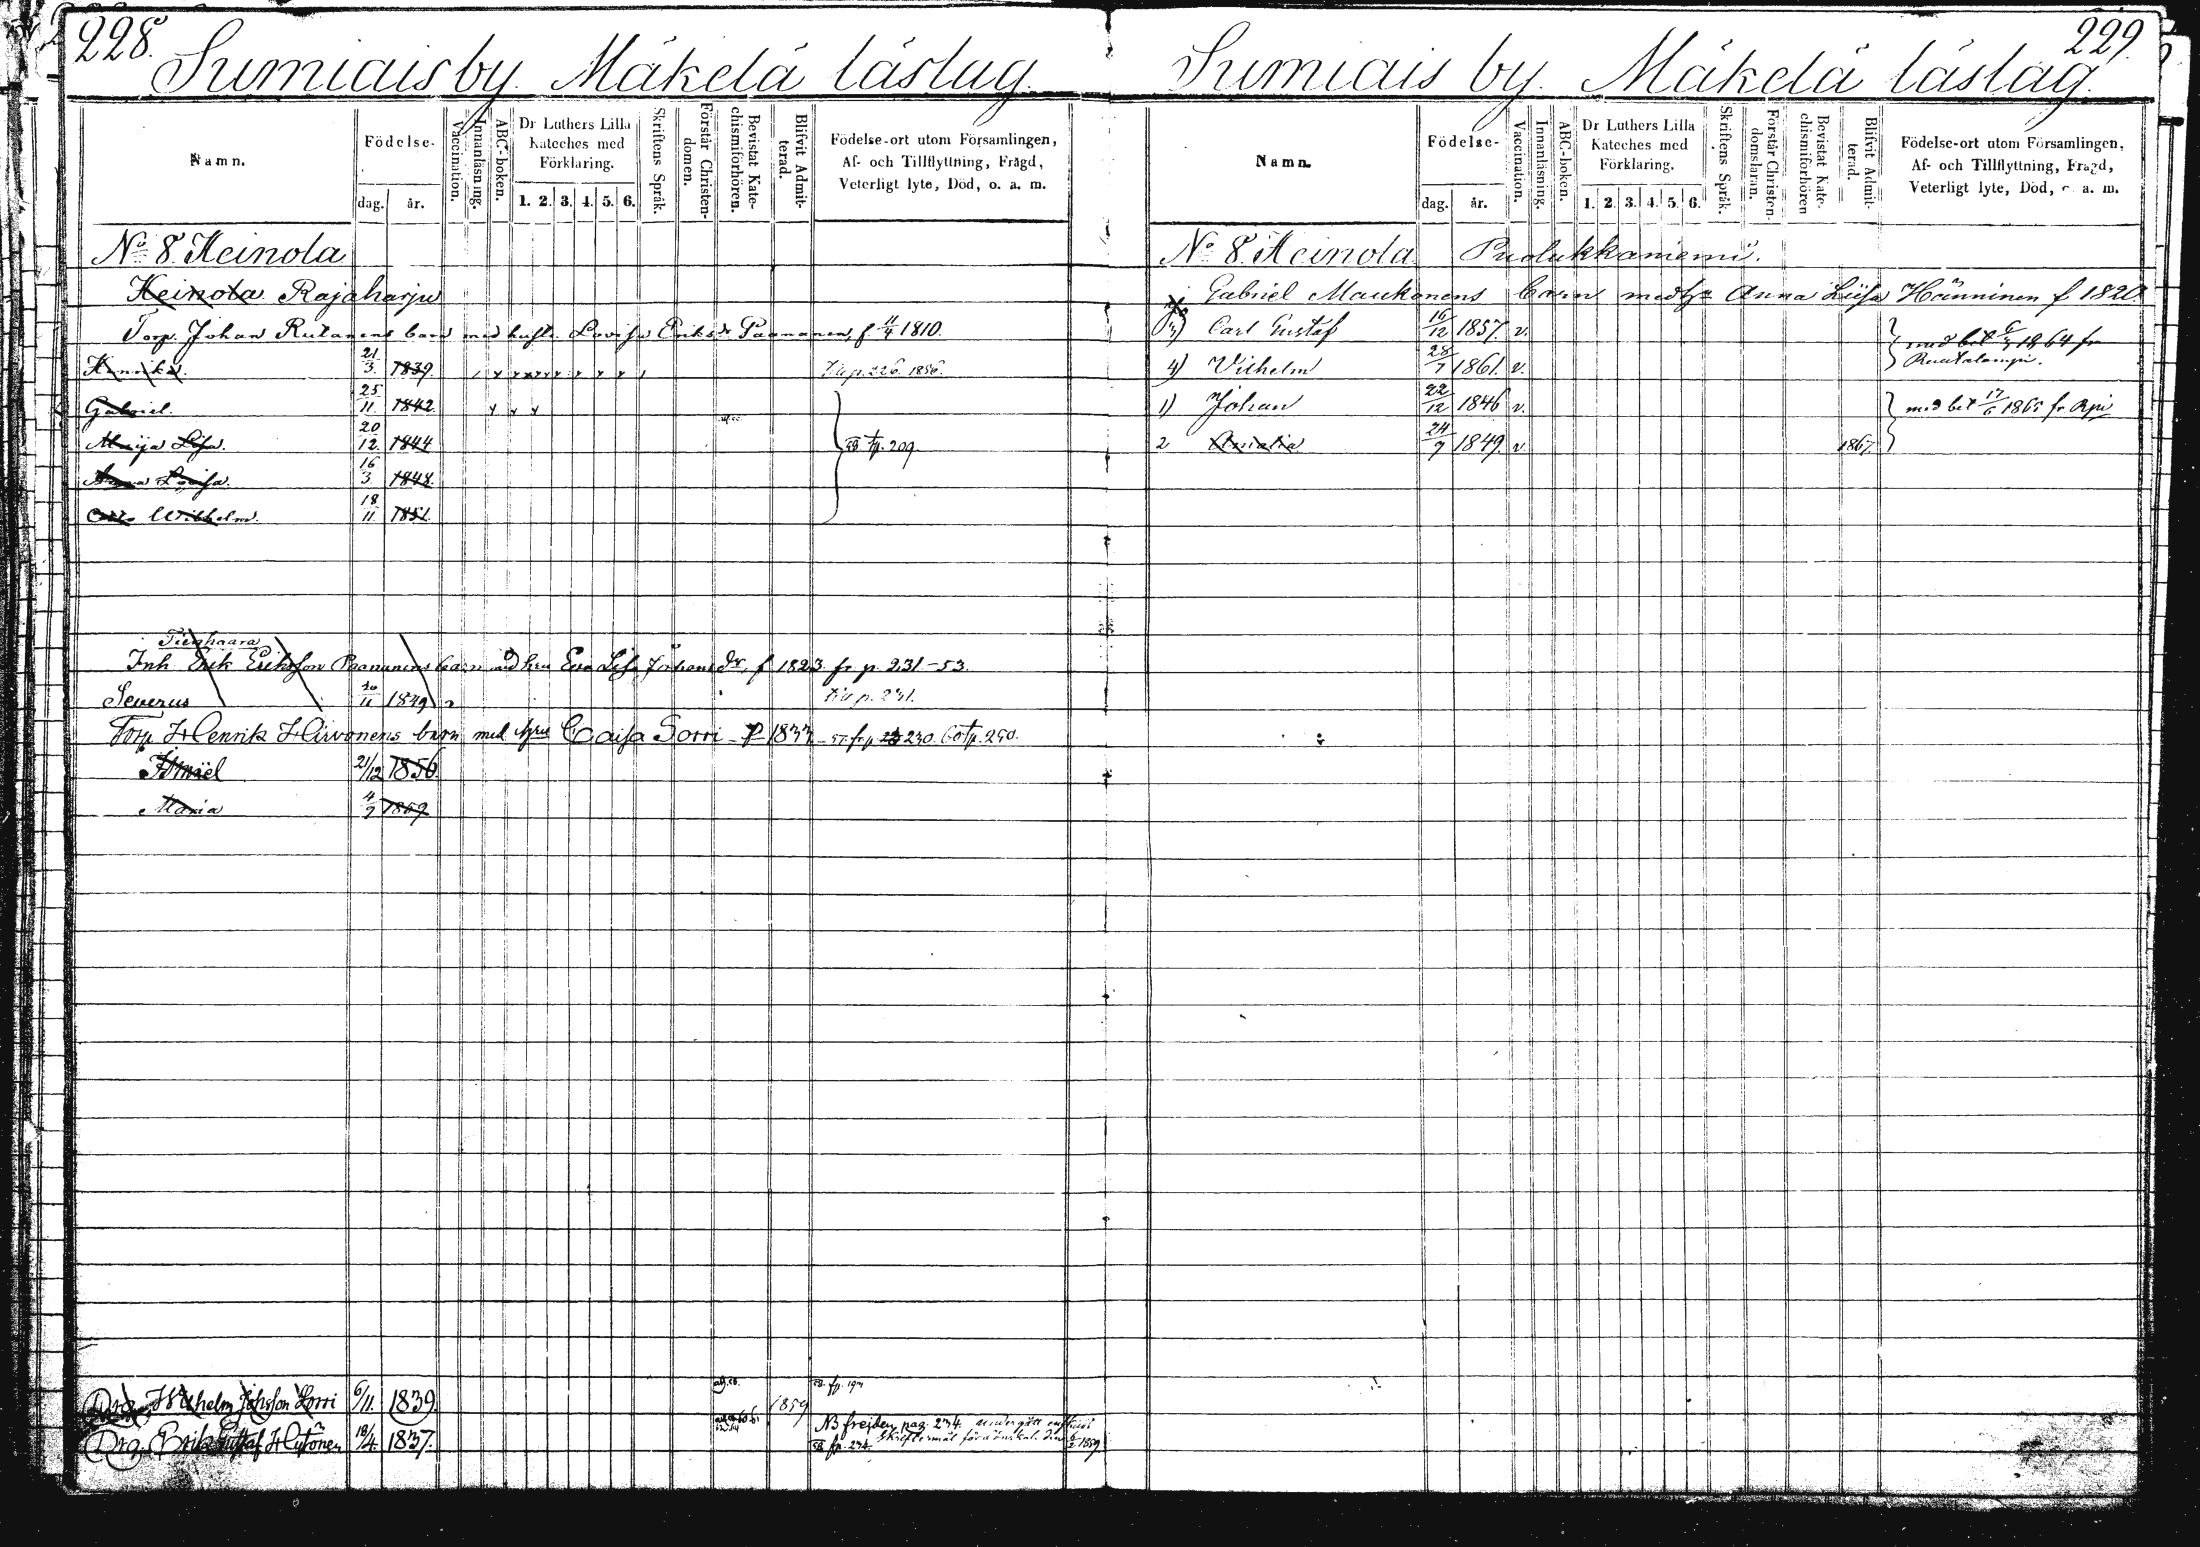 228.
Sumiais by. Mäkelä läslag.
Namn.
Födelse-
dag.
år.
Vaccination.
Innanläsning.
ABC-boken.
Dr Luthers Lilla Kateches med Förklaring.
1. 2. 3. 4. 5. 6.
Skriftens Språk.
Förstår Christendomen.
Bevistat Katechismiförhören.
Blifvit Admitterad.
Födelse-ort utom Församlingen,
Af- och Tillflyttning, Frägd,
Veterligt lyte, Död, o. a. m.
No 8 Heinola
Heinola Rajaharju
Torp. Johan Rutanens barn med hustr. Lovisa Eriksdr Paananen, f 11/4 1810.
Henrika. 21/3 1839. 226. 1856.
Gabriel. 25/11 1842.
Maija Lisa. 20/12 1844 p. 209.
Anna Lovisa. 16/3 1848.
Otto Wilhelm. 18/11 1851.
Tienhaara
Inh Erik Eriksson Paananens barn med hru Eva Lisa Johansdr, f 1823 fr. p. 231-53.
Severus 1849 p. 231.
Torp Henrik Hirvonens barn med hru Caisa Sorri f 1833 fr p 230. 60 fp. 250.
Ismael 21/12 1856
Maria 4/9 1859
Drg. Wilhelm Johsson Sorri 6/11. 1839. 1859
Drg. Erik Gustaf Hytönen 18/4. 1837. NB frejden pag. 234. undergått
fp. 234 1859
229.
Sumiais by. Mäkelä läslag.
Namn.
Födelse-
dag.
år.
Vaccination.
Innanläsning.
ABC-boken.
Dr Luthers Lilla Kateches med Förklaring.
1. 2. 3. 4. 5. 6.
Skriftens Språk.
Förstår Christendomsläran.
Bevistat Katechismiförhören
Blifvit Admitterad.
Födelse-ort utom Församlingen,
Af- och Tillflyttning, Frägd,
Veterligt lyte, Död, o. a. m.
No 8 Heinola Puolukkaniemi.
Gabriel Maukonens barn med h. Anna Liisa Hänninen f 1820
3) Carl Gustaf 16/12 1857. v. med bet 1864 fr
4) Vilhelm 28/7 1861. v. Rautalampi.
1) Johan 22/12 1846 v. med bet 17/6 1865 fr Rpi
2 Amalia 24/9 1849. v. 1867.